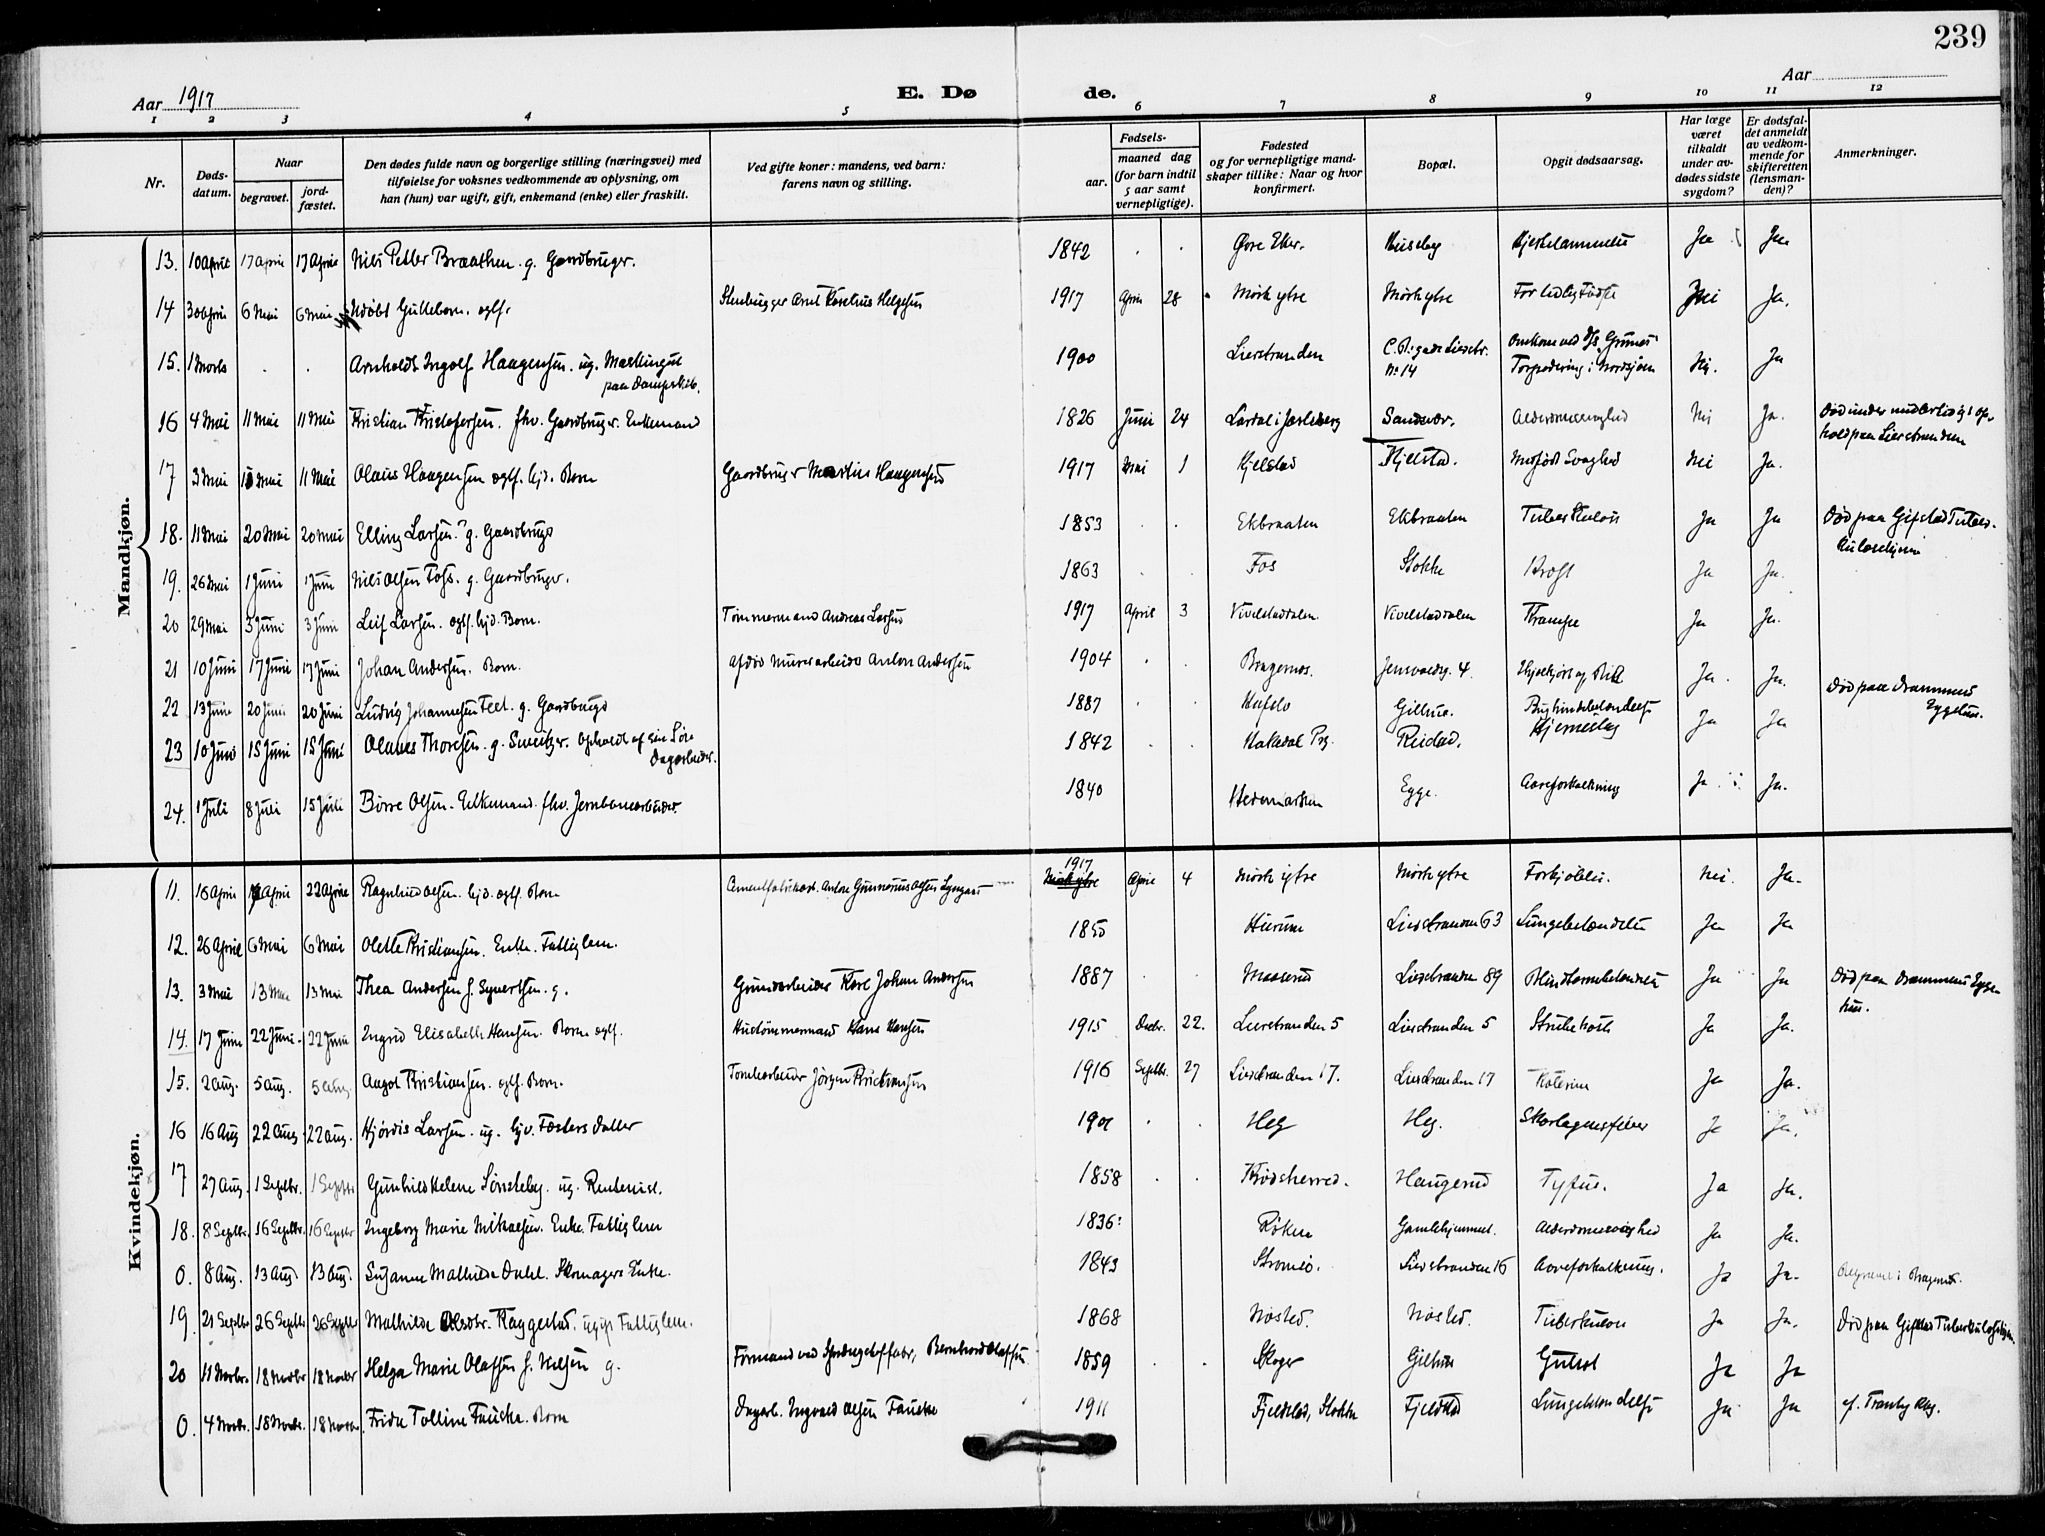 239
Aar 1917
E. Dø de.
Aar
1 2 3 4 5 6 7 8 9 10 11 12
Nr.
Døds-
datum.
Naar
begravet.
jord-
fæstet.
Den dødes fulde navn og borgerlige stilling (næringsvei) med
tilføielse for voksnes vedkommende av oplysning, om
han (hun) var ugift, gift, enkemand (enke) eller fraskilt.
Ved gifte koner: mandens, ved barn:
farens navn og stilling.
Fødsels-
aar.
maaned dag
(for barn indtil
5 aar samt
vernepligtige).
Fødested
og for vernepligtige mand-
skaper tillike: Naar og hvor
konfirmert.
Bopæl.
Opgit dødsaarsag.
Har læge
været
tilkaldt
under av-
dødes sidste
sygdom?
Er dødsfal-
det anmeldt
av vedkom-
mende for
skifteretten
(lensman-
den)?
Anmerkninger.
Mandkjøn.
13. 10 April 17 April 17 April Nils Petter Braathen. g. Gaardbruger. 1842 Øvre Eker. Huseby Ja Ja
14 30 April 6 Mai 6 Mai Udøbt Guttebarn. egtf. 1917 April 28 Mørk ytre Mørk ytre For tidlig Født Nei Ja.
15. 1 Marts Arnholdt Ingolf Haagensen. ug. 1900 Lierstranden Ja
paa Dampskib. No 14 Torpedering i Nordsjøen
16 4 Mai 11 Mai 11 Mai Kristian Kristofersen. fhv. Gaardbruger. Enkemand 1826 Juni 24 Lardal i Jarlsberg Sandsvær. Alderdomssvaghed Nei Ja. Død under midlertidigt op-
hold paa Lierstranden
17 3 Mai 11 Mai 11 Mai Olaus Haagensen egtf. hjd. Barn Gaardbruger Martin Haagensen 1917 Mai 1 Kjelstad Kjelstad. Medfødt Svaghed Nei Ja.
18. 11 Mai 20 Mai 20 Mai Elling Larsen. g. Gaardbruger 1853 Ekbraaten Ekbraaten Tuberkulos Ja Ja Død paa Gifstad Tuber-
kulosehjem
19. 26 Mai 1 Juni 1 Juni Nils Olsen Foss. g. Gaardbruger. 1863 Fos Stokke Kræft Ja Ja.
20 29 Mai 3 Juni 3 Juni Leif Larsen. egtf. hjd. Barn. Tømmermand Andreas Larsen 1917 April 3 Vivelstaddalen Vivelstaddalen Krampe Ja Ja.
21 10 Juni 17 Juni 17 Juni Johan Andersen. Barn. afdød Murerarbeider Anton Andersen 1904 Bragernes. Ja. Ja.
22 13 Juni 20 Juni 20 Juni Ludvig Johannesen g. Gaardbruger 1887 Hafslo Gilhus. Bughindebetændelse Ja Ja Død paa Drammens
Sygehus.
23 10 Juni 15 Juni 15 Juni Olaves Thoresen. g. 1842 Hakedal Reistad. Hjerneslag
Dagarbeider.
24. 1 Juli 8 Juli 15 Juli Børre Olsen. Enkemand. fhv. Jernbanearbeider. 1840 Hedemarken Egge. Aareforkalkning Ja Ja.
Kvindekjøn.
11. 16 April April 22 April Ragnhild Olsen. hjd. egtf. Barn 1917 April 4 Mørk ytre Mørk ytre Forkjølelse. Nei. Ja.
12. 26 April 6 Mai 6 Mai Olette Kristiansen. Enke. Fattiglem. 1850 Hurum Lierstranden 63 Lungebetændelse Ja Ja
13. 3 Mai 13 Mai 13 Mai Thea Andersen f. Syvertsen. g. Grundarbeider Karl Johan Andersen 1887 Lierstranden 89 Blindtarmbetændelse Ja Ja Død paa Drammens Syge-
hus.
14. 17 Juni 22 Juni. 22 Juni Ingrid Elisabeth Hansen. Barn egtf. Hustømmermand Hans Hansen 1915 Decbr. 22. Lierstranden 5 Lierstranden 5 Strubehoste Ja Ja.
15. 2 Aug. 5 Aug. 5 Aug. Aagot Kristiansen. egtf. Barn. Tomtearbeider Jørgen Kristiansen 1916 Septbr. 27 Lierstranden 17. Lierstranden 17 Ja Ja.
16 16 Aug 22 Aug 22 Aug. Hjørdis Larsen. ug. hjv. Fosters Datter Heg Heg. Skarlagensfeber Ja Ja.
17 27 Aug. 1 Septbr. 1 Septbr Gunhild Helene Sønsteby. ug. Rentenist. 1858 Krødsherred. Haugerud Tyfus. Ja Ja.
18. 8 Septbr. 16 Septbr. 16 Septbr Ingeborg Marie Mikaelsen. Enke. Fattiglem 1836. Røken Gamlehjemmet. Alderdomssvaghed Ja Ja.
0. 8 Aug. 13 Aug 13 Aug. Susanne Mathilde Dahl. Skomagers Enke. 1843 Strømsø. Lierstranden 16 Aareforkalkning. Ja Ja. Begravet i Bragernes.
19. 21 Septbr 26 Septbr 26 Septbr Mathilde Olsdtr. Kaggestad. ugift Fattiglem. 1868 Nøsted. Nøsted. Tuberkulos Ja Ja. Død paa Gifstad Tuberkulosehjem
20 11 Novbr. 18 Novbr 18 Novbr Helga Marie Olafsen f. Nilsen g. Formand ved Bernhard Olafsen 1859 Skoger Gilhus Gulsot Ja Ja
0. 4 Novbr. 18 Novbr. 18 Novbr. Frida Tolline Fauske. Barn Dagarb. Ingvald Olsen Fauske 1911 Fjeldstad, Stokke Fjeldstad Lungebetændelse Ja Ja cf. Tranby Reg.